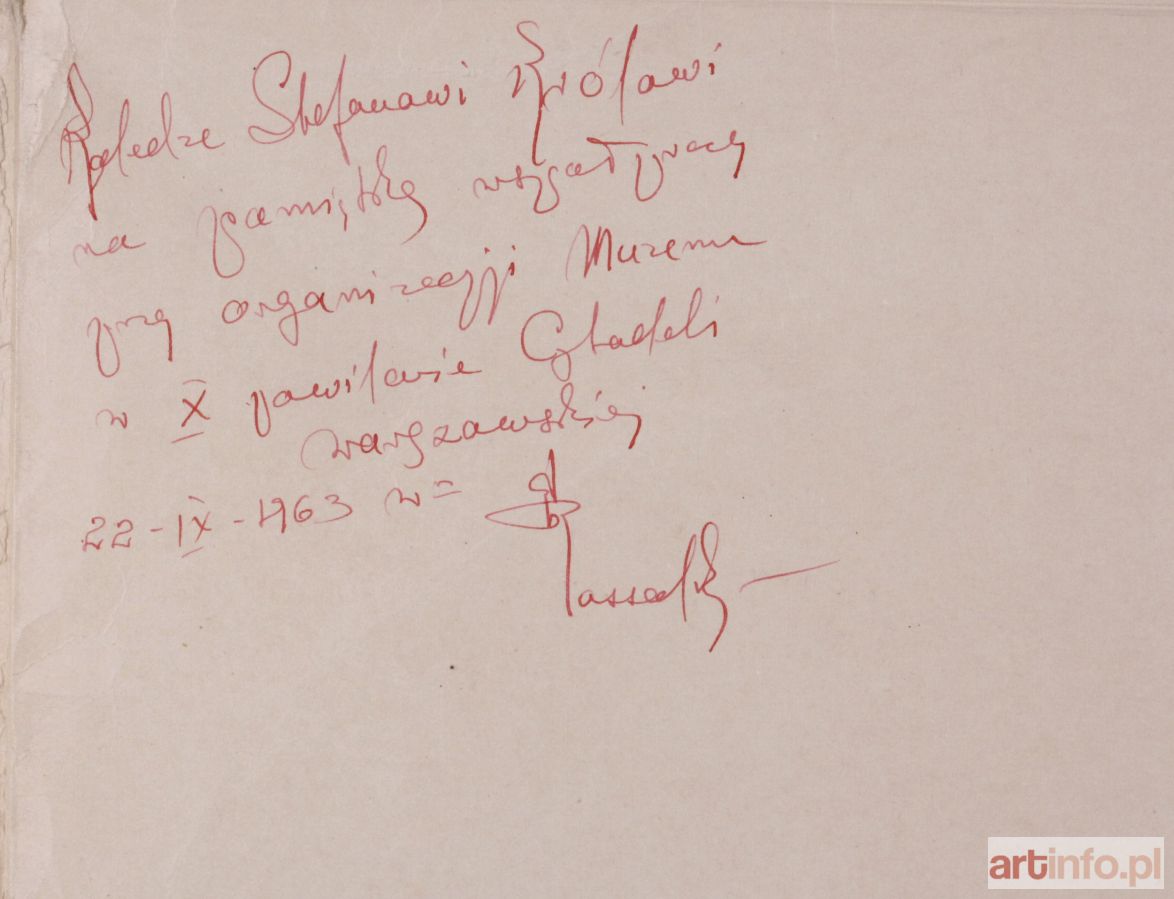 Koledze Stefanowi Królowi
na pamiątkę współpracy
przy organizacji Muzeum
w X pawilonie Cytadeli
warszawskiej
22-IX-1963 w=
artinfo.pl